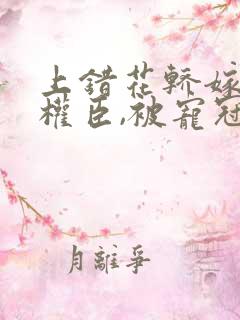 上錯花轎嫁
權臣,被寵冠
月離爭